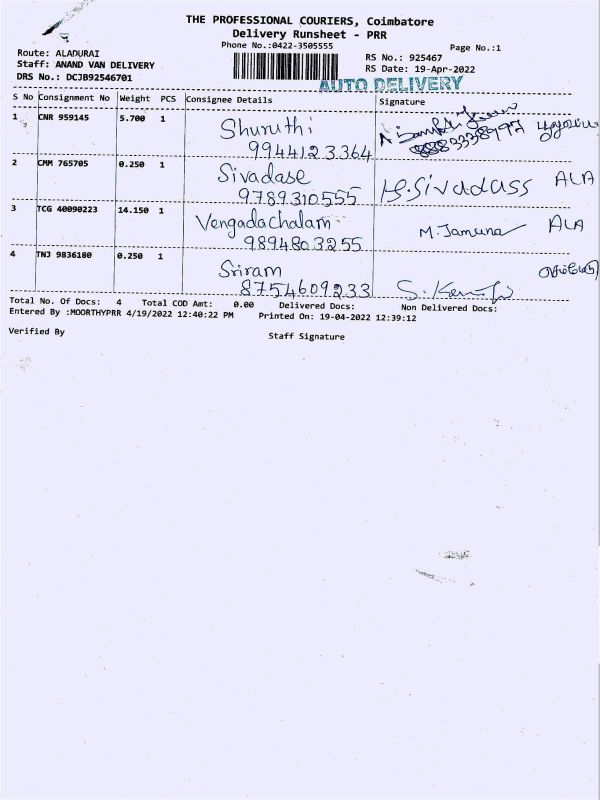 THE PROFESSIONAL COURIERS, Coimbatore
Delivery Runsheet - PRR
Phone No.:0422-3505555
Page No.:1
Route: ALADURAI
Staff: ANAND VAN DELIVERY
DRS No.: DCJB92546701
RS No.: 925467
RS Date: 19-Apr-2022
AUTO DELIVERY
S No Consignment No Weight PCS Consignee Details Signature
1 CNR 959145 5.700 1 Shuruthi
9944123364
2 CMM 765705 0.250 1 Sivadase
9789310555 M.Sivadass ALA
3 TCG 40090223 14.150 1 Vengadachalam
9894803255 M.Jamuna ALA
4 TNJ 9836180 0.250 1 Sriram
8754609233
Total No. Of Docs: 4 Total COD Amt: 0.00 Delivered Docs: Non Delivered Docs:
Entered By :MOORTHYPRR 4/19/2022 12:40:22 PM Printed On: 19-04-2022 12:39:12
Verified By Staff Signature